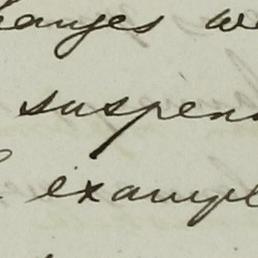 hanges we
suspen
exampl